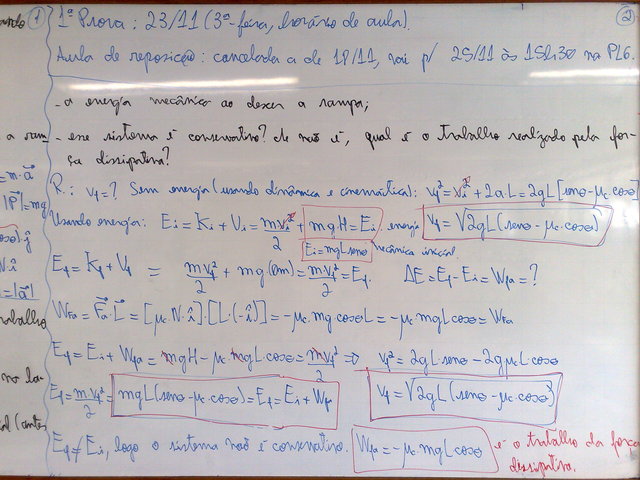 ① 1ª Prova: 23/11 (3ª-feira, horário de aula). ②
Aula de reposição: cancelada a de 18/11, vai p/ 25/11 às 15h30 na P16.
- a energia mecânica ao descer a rampa;
a ram
- esse sistema é conservativo? Se não é, qual é o trabalho realizado pela for-
ça dissipativa?
=m·a⃗
|P⃗|=mg
R.: v_f=? Sem energia (usando dinâmica e cinemática): v_f²=v_i²+2aL=2gL[senθ-μc·cosθ]
Usando energia: E_i=K_i+U_i=mv_i²/2+mgH=E_i energia mecânica inicial. v_f=√2gL(senθ-μc·cosθ)
E_i=mgLsenθ
E_f=K_f+U_f = mv_f²/2+mg(0m)=mv_f²/2=E_f. ΔE=E_f-E_i=W_Fa=?
W_Fa=F⃗a·L⃗=[μc·N·î]·[L·(-î)]=-μc·mg cosθL=-μc·mgLcosθ=W_Fa
E_f=E_i+W_Fa=mgH-μc·mgLcosθ=mv_f²/2 ⇒ v_f²=2gLsenθ-2gμcLcosθ
no la-
E_f=mv_f²/2=mgL(senθ-μc·cosθ)=E_f=E_i+W_Fa v_f=√2gL(senθ-μc·cosθ)
E_f≠E_i, logo o sistema não é conservativo. W_Fa=-μc·mgLcosθ é o trabalho da força
dissipativa.